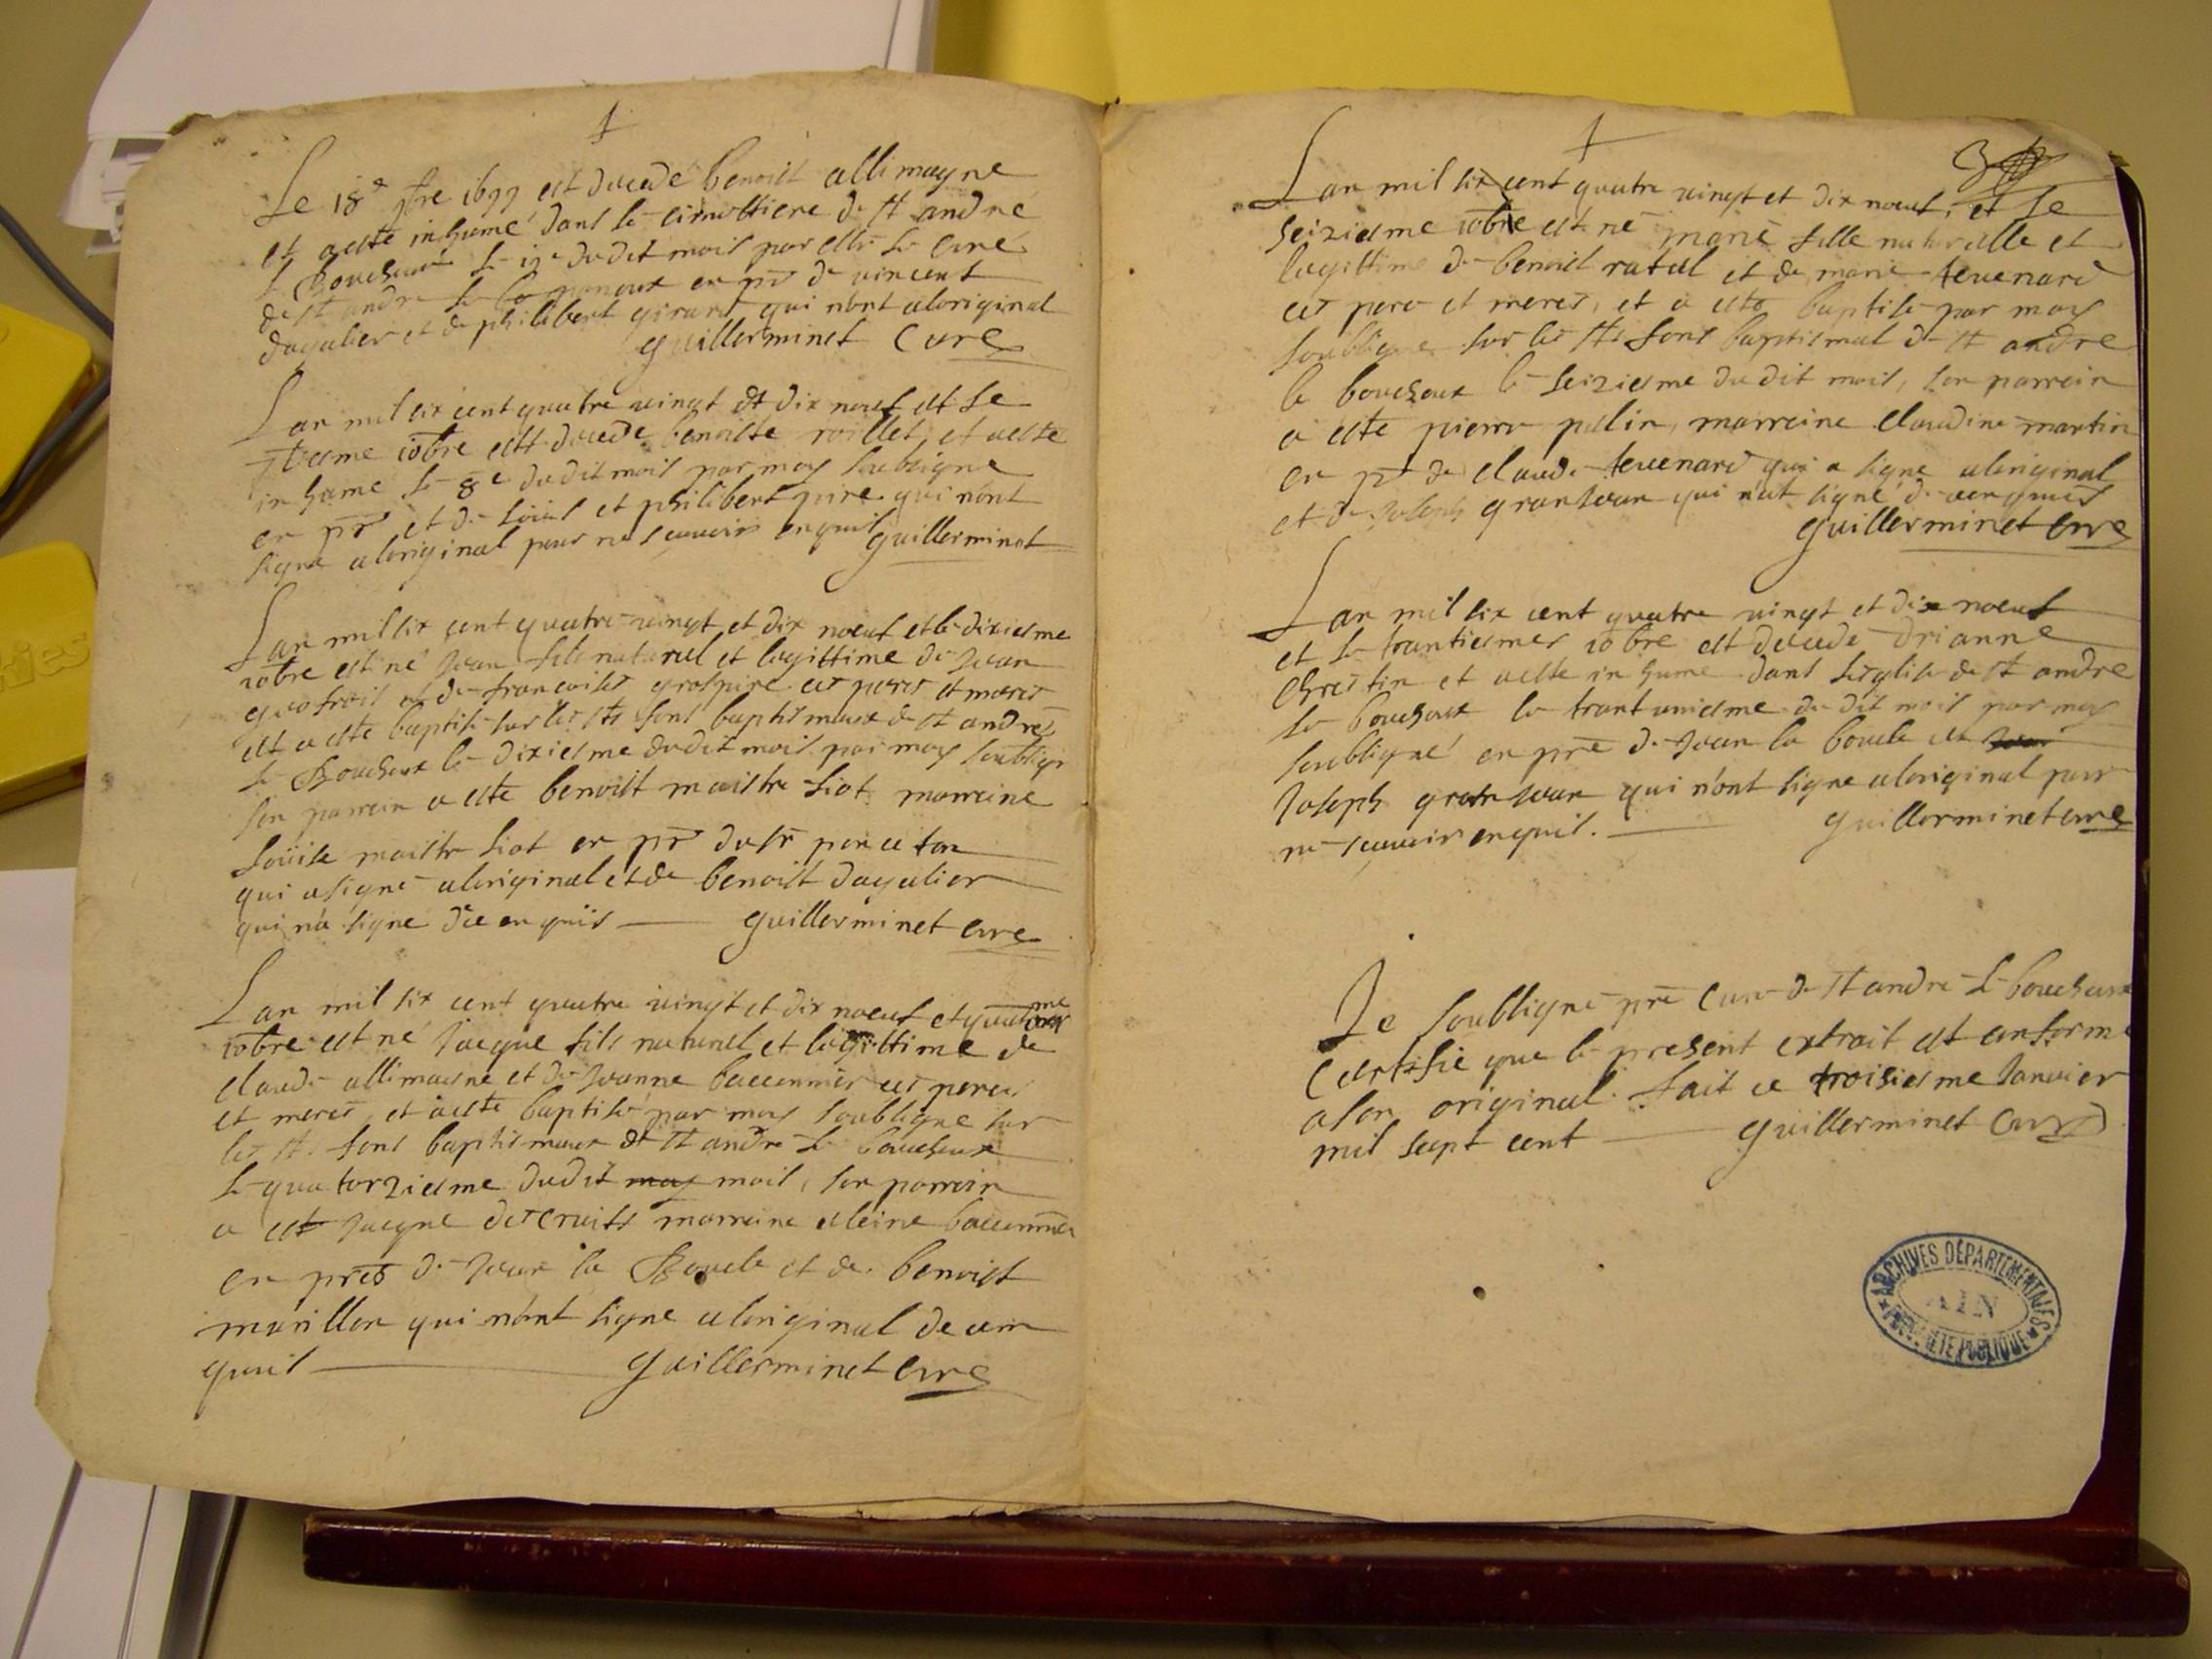 Le 18e 9bre 1699 est decedé benoist allimagne
et a esté inhumé dans le cimettiere de St andre
le Bouchoux le 19e dudit mois par le Curé
de St andre le en pr de vincent
dagalier et de philibert girard qui n'ont aloriginal
guillerminet Curé
Lan mil six cent quatre vingt et dix nœuf et le
10bre est decede benoiste roillet, et a esté
inhume le 8e dudit mois par moy soubsigne
en pr et de et philibert pire qui n'ont
signé aloriginal pour ne scavoir enquis guillerminet
Lan mil six cent quatre vingt et dix nœuf et le dixiesme
10bre est né Jean fils naturel et legittime de Jean
et de francoise grospire ces peres et meres
et a esté baptisé sur les sts fons baptismaux de St andre
le Bouchoux le dixiesme dudit mois par moy soubsigne
son parrein a esté benoist maistre liat marreine
Loüise maistre liat en pr du sr
qui a signé aloriginal et de benoist dagalier
qui n'a signé de ce enquis guillerminet cure
Lan mil six cent quatre vingt et dix nœuf et
10bre est né Jacque fils naturel et legittime de
claude allimagne et de Jeanne ces peres
et meres, et a esté baptisé par moy soubsigne sur
les sts fons baptismaux de St andre le bouchoux
le quatorziesme dudit may mois, son parrein
a esté Jacque descruits marreine
en pres de Jean la Boucle et de benoist
morillon qui n'ont signe aloriginal de ce en
quis guillerminet cure
3
Lan mil six cent quatre vingt et dix nœuf, et le
seiziesme 10bre est né marie fille naturelle et
legittime de benoist ratel et de marie tevenard
ces pere et meres, et a esté baptisé par moy
soubsigne sur les sts fons baptismal de St andre
le bouchoux le seiziesme du dit mois, son parrein
a esté pierre pelin, marreine claudine martin
en pr de claude tevenard qui a signe aloriginal
et de Joseph granjean qui n'at signé de ce enquis
guillerminet cure
Lan mil six cent quatre vingt et dix nœuf
et le trantiesmes 10bre est decede drianne
Chrestin et a esté inhumé dans leglise de St andre
le bouchoux le trant uniesme du dit mois par moy
soubsigné en pre de Jean la boucle et Jean
Joseph granjean qui n'ont signe aloriginal pour
ne scavoir enquis. guillerminet cure
Je soubsigné pre Cure de St andre le bouchoux
Certifie que le present extrait est conforme
a son original. fait ce troisiesme Janvier
mil sept cent guillerminet Curé
ARCHIVES DÉPARTEMENTALES
AIN
PROPRIÉTÉ PUBLIQUE